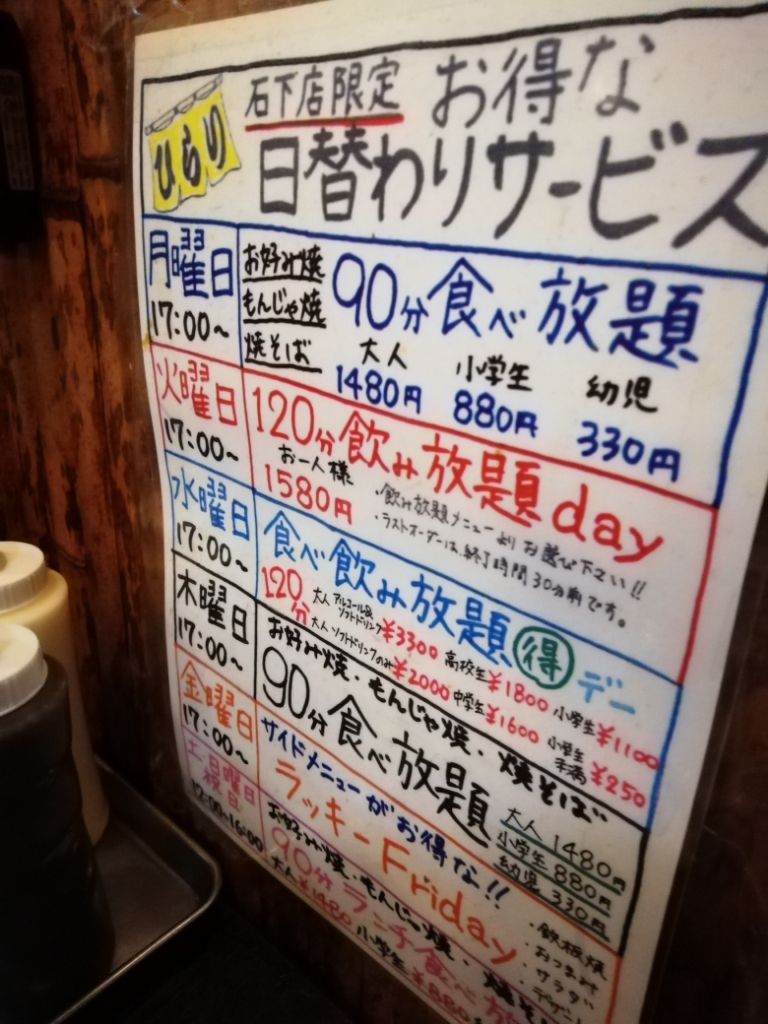 ひらり
石下店限定 お得な
日替わりサービス
月曜日
17:00~
お好み焼
もんじゃ焼
焼そば
90分食べ放題
大人 小学生 幼児
1480円 880円 330円
火曜日
17:00~
120分飲み放題day
お一人様
1580円
・飲み放題メニューよりお選び下さい!!
・ラストオーダーは、終了時間30分前です。
水曜日
17:00~
食べ飲み放題得デー
120分
大人 アルコール&ソフトドリンク ¥3300 高校生¥1800 小学生¥1100
大人 ソフトドリンクのみ ¥2000 中学生¥1600 小学生未満¥250
木曜日
17:00~
お好み焼・もんじゃ焼・焼そば
90分食べ放題
大人 1480円
小学生 880円
幼児 330円
金曜日
17:00~
サイドメニューがお得な!!
ラッキーFriday
・鉄板焼
・おつまみ
・サラダ
・デザート
土・日曜日
祝日
12:00~16:00
お好み焼・もんじゃ焼・焼そ
90分ランチ食べ放
大人¥1480 小学生¥880